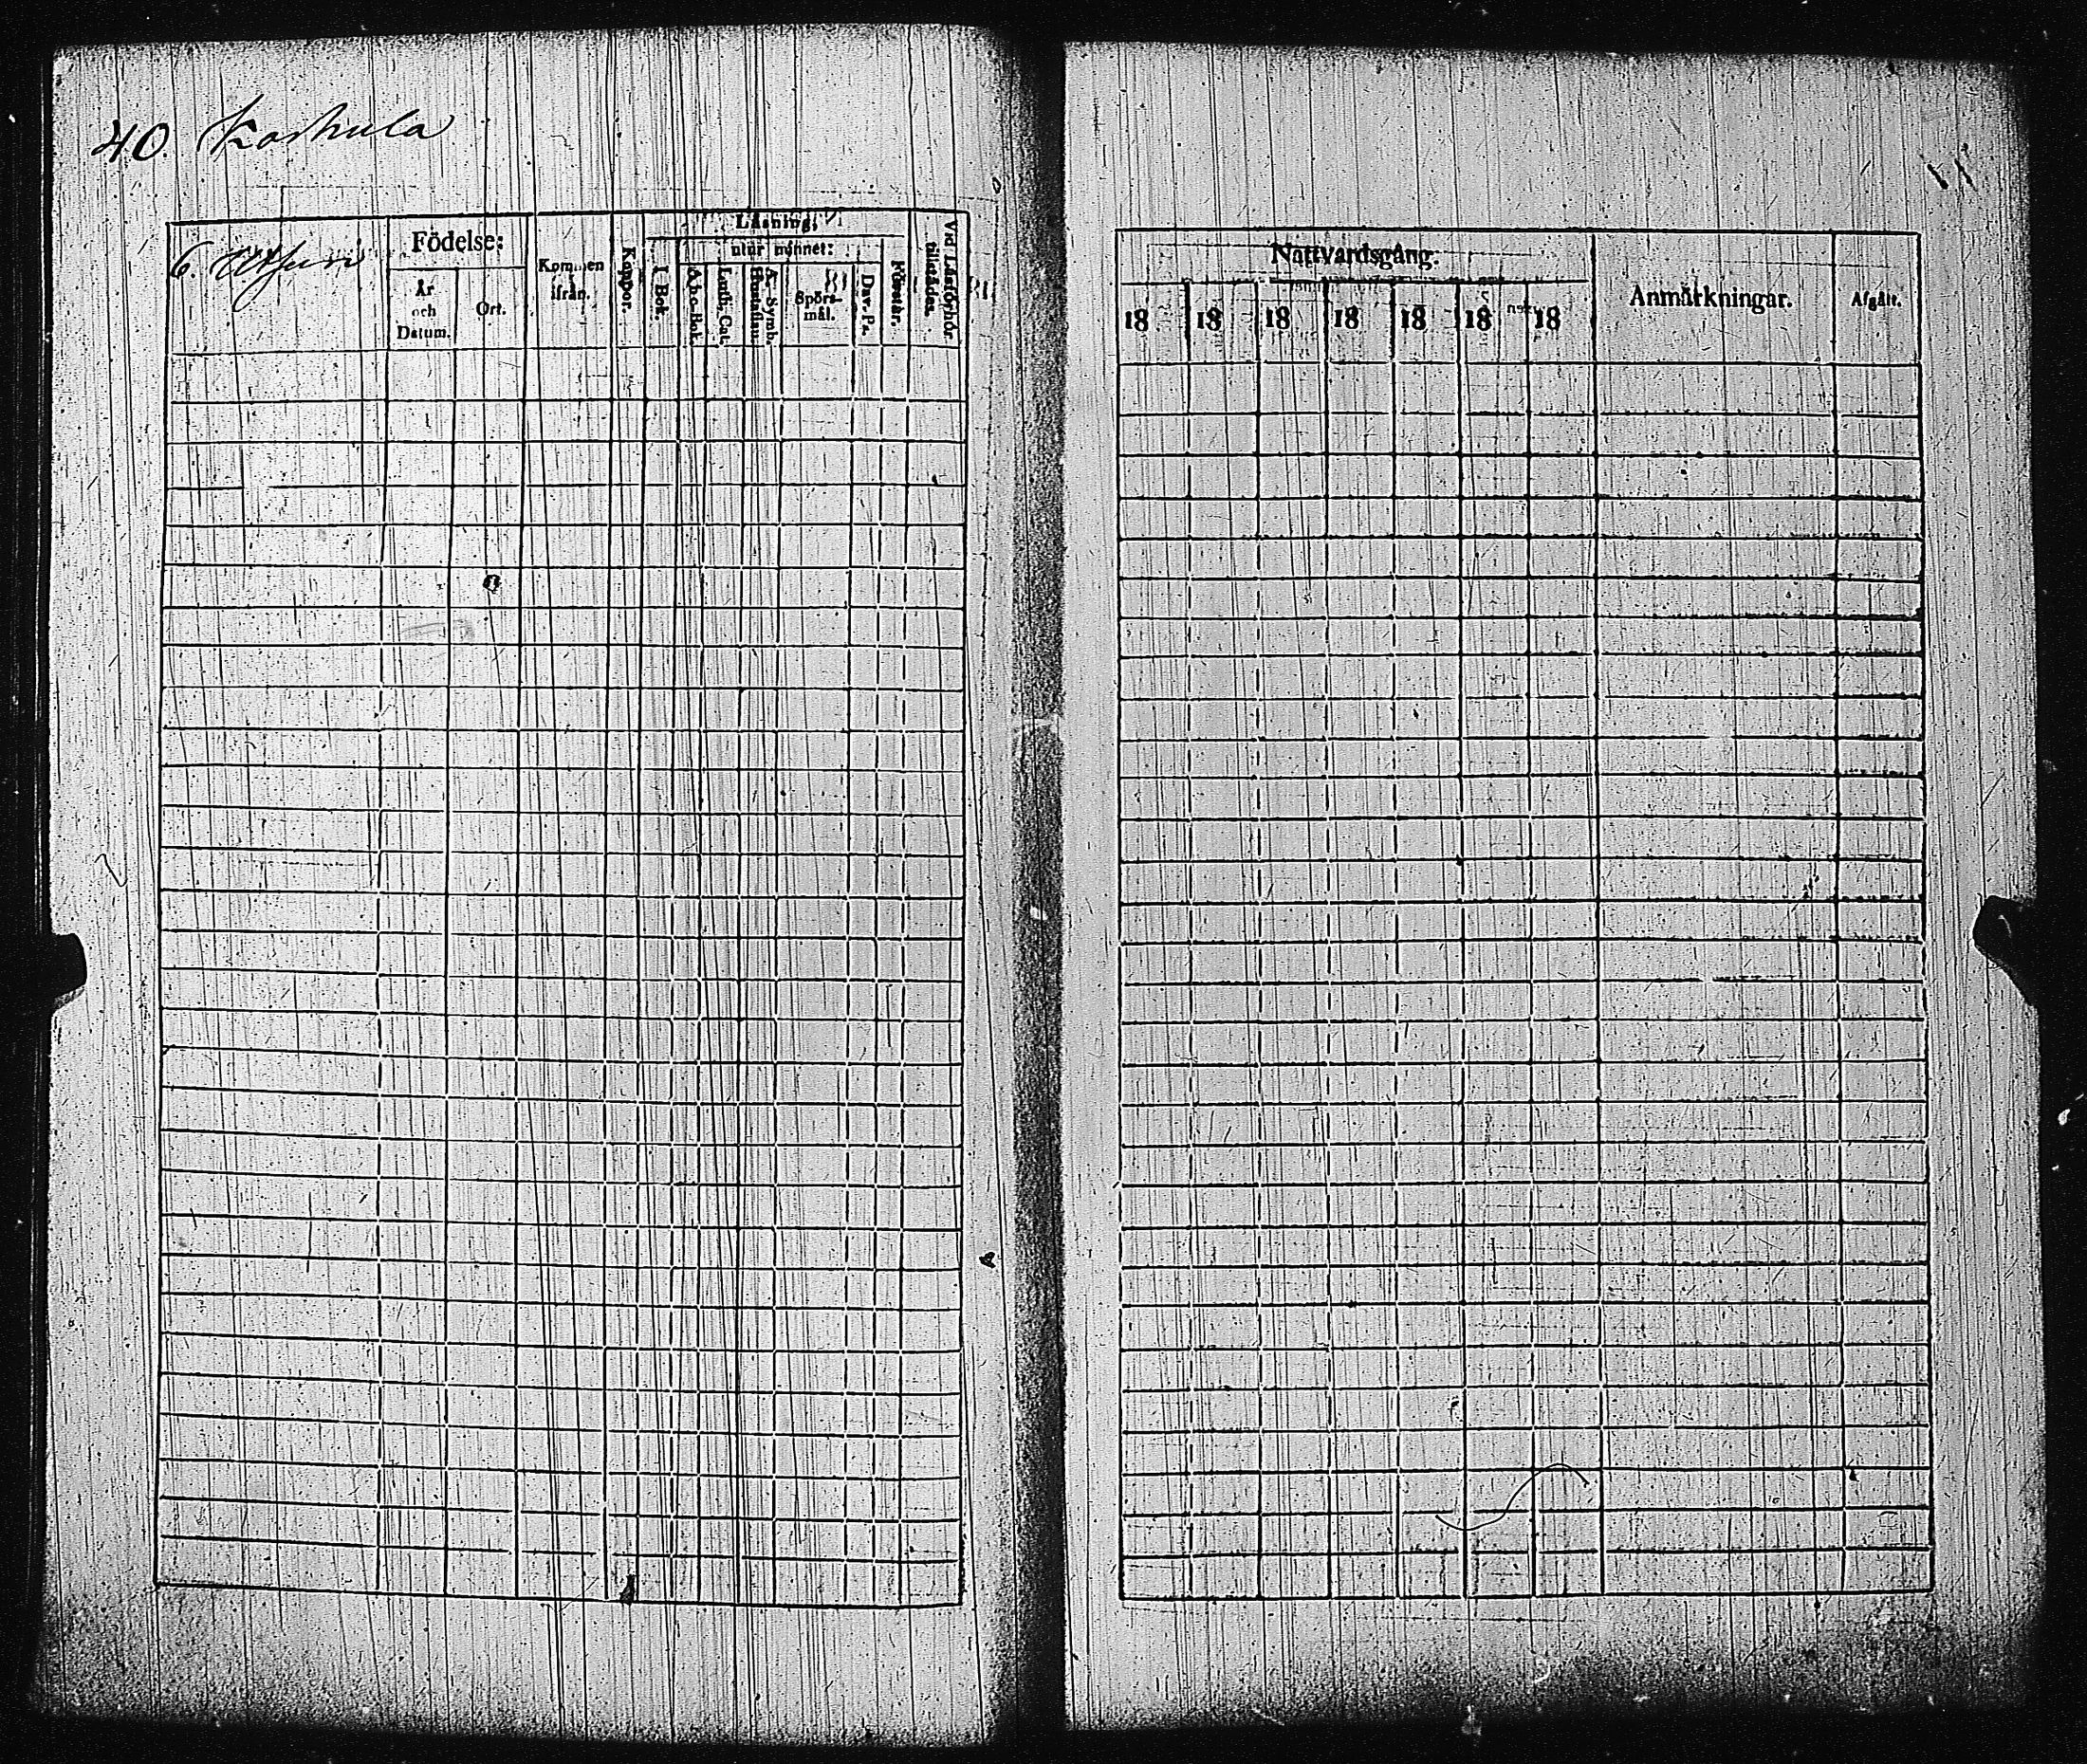 40. Koskula
6 Utsuri
Födelse:
År
och
Datum.
Ort.
Kommen
ifrån.
Koppor.
Läsning,
utur minnet:
I Bok.
A.b.c.-Bok.
Luth. Cat.
Hustaflan.
A. Symb.
Spörs-
mål.
Dav. Ps.
Förstår.
Vid Läsförhör
tillstädes.
Nattvardsgång.
18
18
18
18
18
18
18
Anmärkningar.
Afgått.